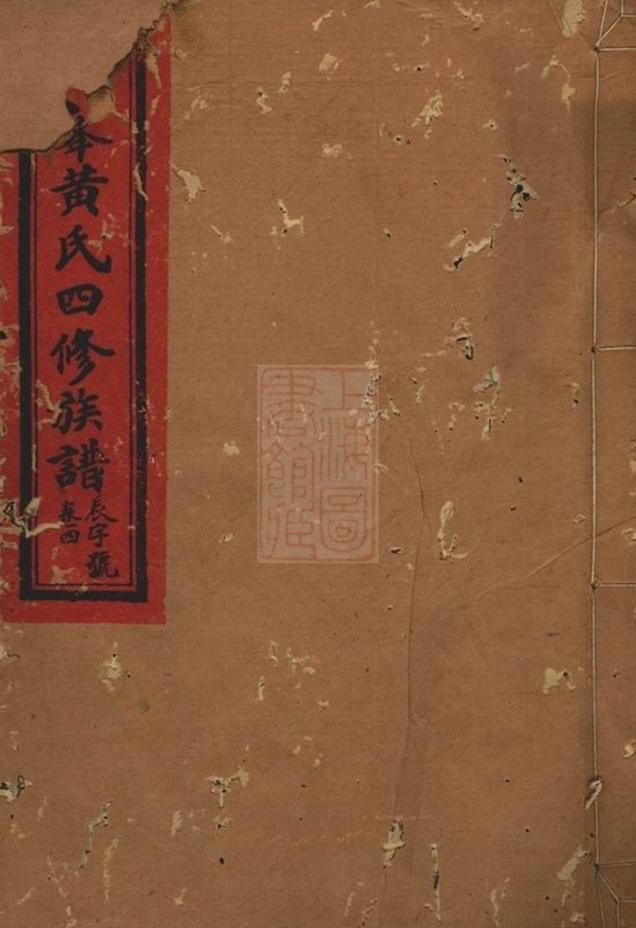 奉黄氏四修族譜
辰字號
卷四
上海圖
書館藏